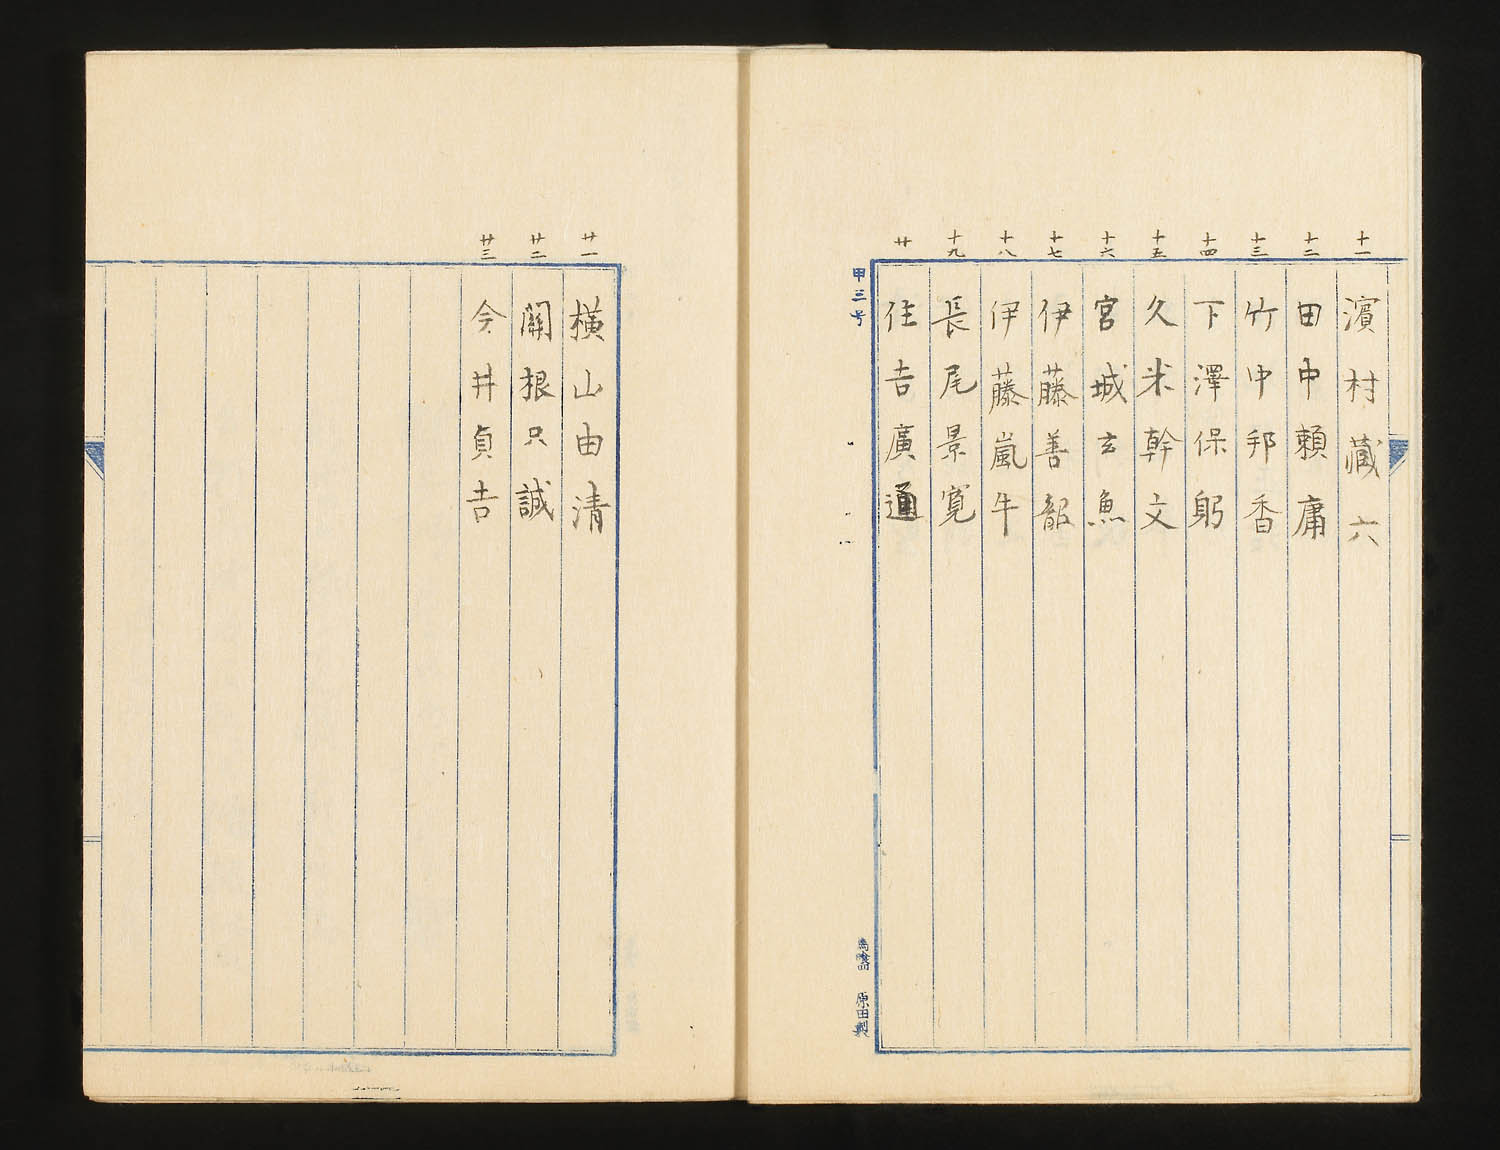 十一
濱村蔵六
十二
田中頼庸
十三
竹中邦香
十四
下澤保躬
十五
久米幹文
十六
宮城玄魚
十七
伊藤善韶
十八
伊藤嵐牛
十九
長尾景寛
廿
住吉廣通
甲三号
原田製
廿一
横山由清
廿二
關根只誠
廿三
今井貞吉